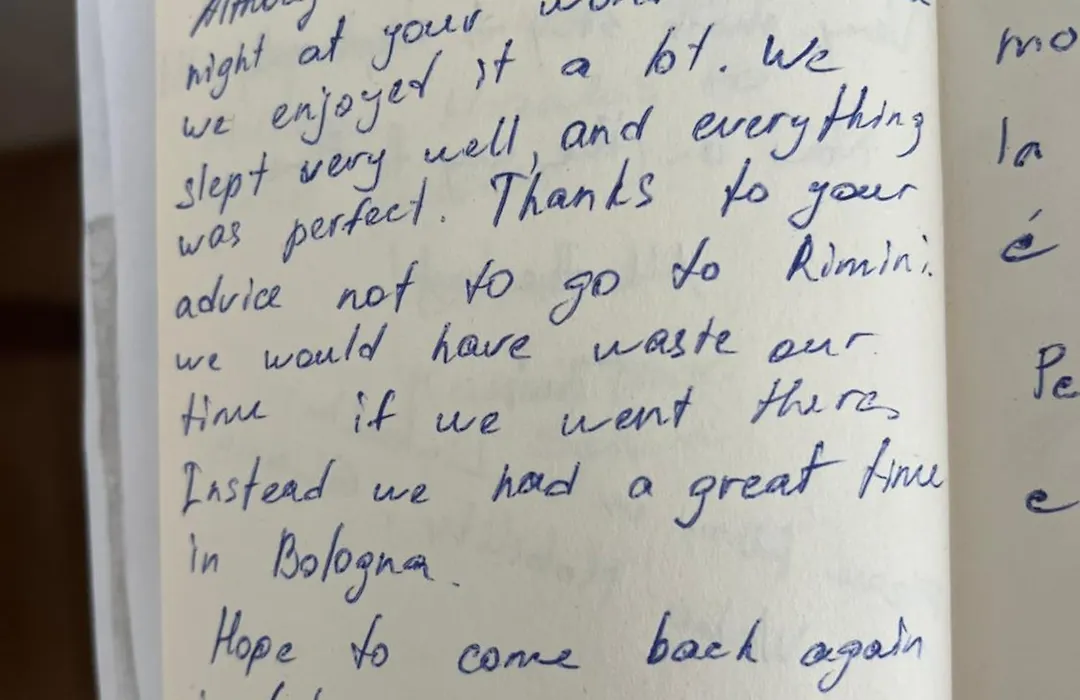 night at your
we enjoyed it a lot. We
slept very well, and everything
was perfect. Thanks to your
advice not to go to Rimini.
we would have waste our
time if we went there,
Instead we had a great time
in Bologna.
Hope to come back again
mo
la
é
Pe
e